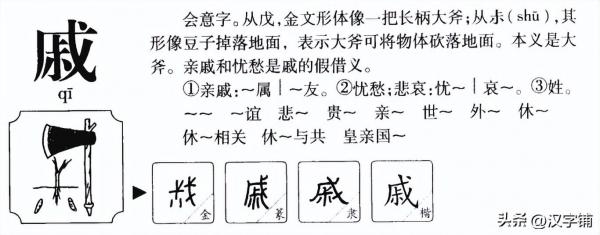 戚
qī
会意字。从戊，金文形体像一把长柄大斧；从尗(shū)，其
形像豆子掉落地面，表示大斧可将物体砍落地面。本义是大
斧。亲戚和忧愁是戚的假借义。
①亲戚：～属｜～友。②忧愁；悲哀：忧～｜哀～。③姓。
～～ ～谊 悲～ 贵～ 亲～ 世～ 外～ 休～
休～相关 休～与共 皇亲国～
金
戚 篆
戚 隶
戚 楷
头条 @汉字铺